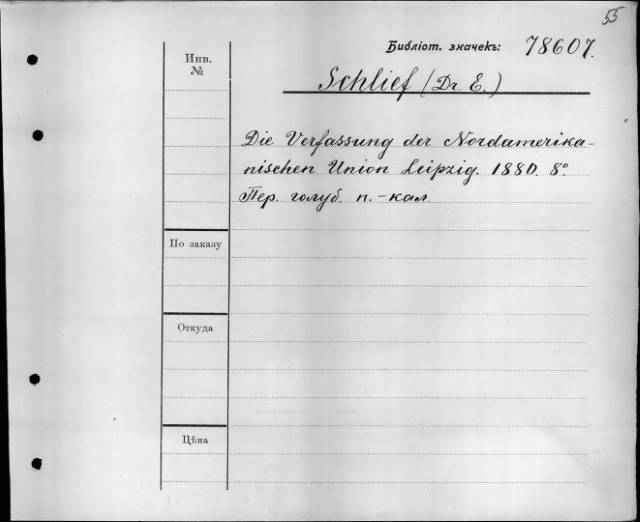 55
Библіот. значекъ: 78607.
Инв.
№
Schlief (Dr. E.)
Die Verfassung der Nordamerika-
nischen Union Leipzig. 1880. 8°
Пер. голуб. п.-кал.
По заказу
Откуда
Цѣна